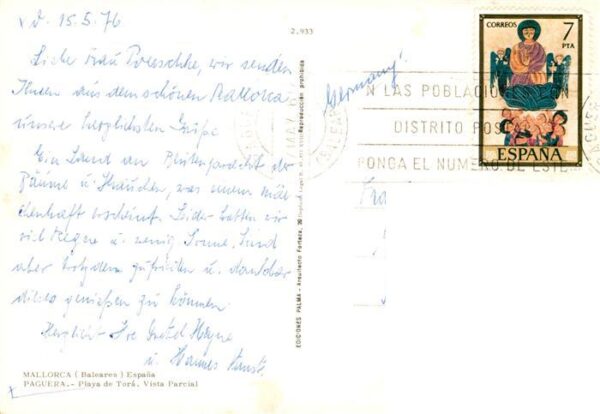 d. 15.5.76
Liebe Frau Poeschke, wir senden
Ihnen aus dem schönen Mallorca
unsere herzlichsten Grüße
Ein Land an Blütenpracht der
Bäume u. Sträucher, was einem mär
chenhaft erscheint. Leider hatten wir
viel Regen u. wenig Sonne. Sind
aber trotzdem zufrieden u. dankbar
dieses genießen zu können
Herzlichst Ihre Gretel
u. Hannes
MALLORCA (Baleares) España
PAGUERA.- Playa de Torá. Vista Parcial
2.933
EDICIONES PALMA - Arquitecto Forteza, 30
Reproducción prohibida
Germany!
CORREOS
7
PTA
ESPAÑA
N LAS POBLACION CON
DISTRITO POS
PONGA EL NUMERO DE ESTE
Fra